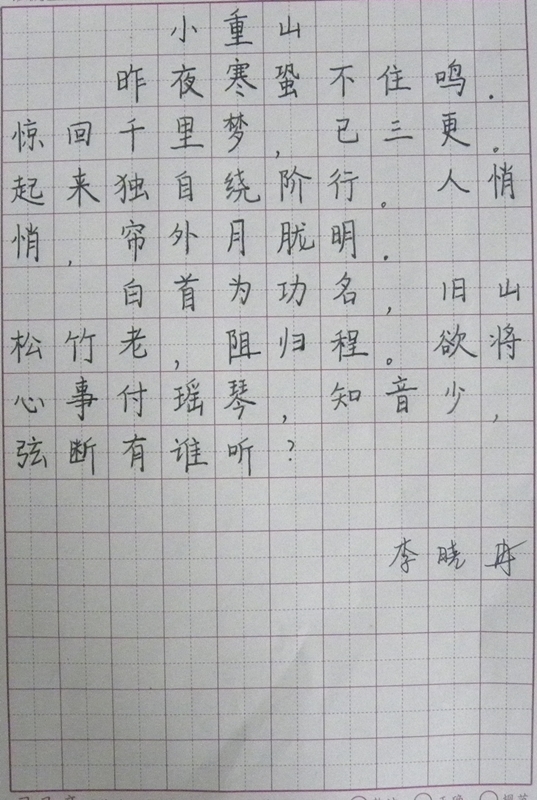 小重山
昨夜寒蛩不住鸣.
惊回千里梦,已三更。
起来独自绕阶行。人悄
悄,帘外月胧明.
白首为功名,旧山
松竹老,阻归程。欲将
心事付瑶琴,知音少,
弦断有谁听?
李晓冉